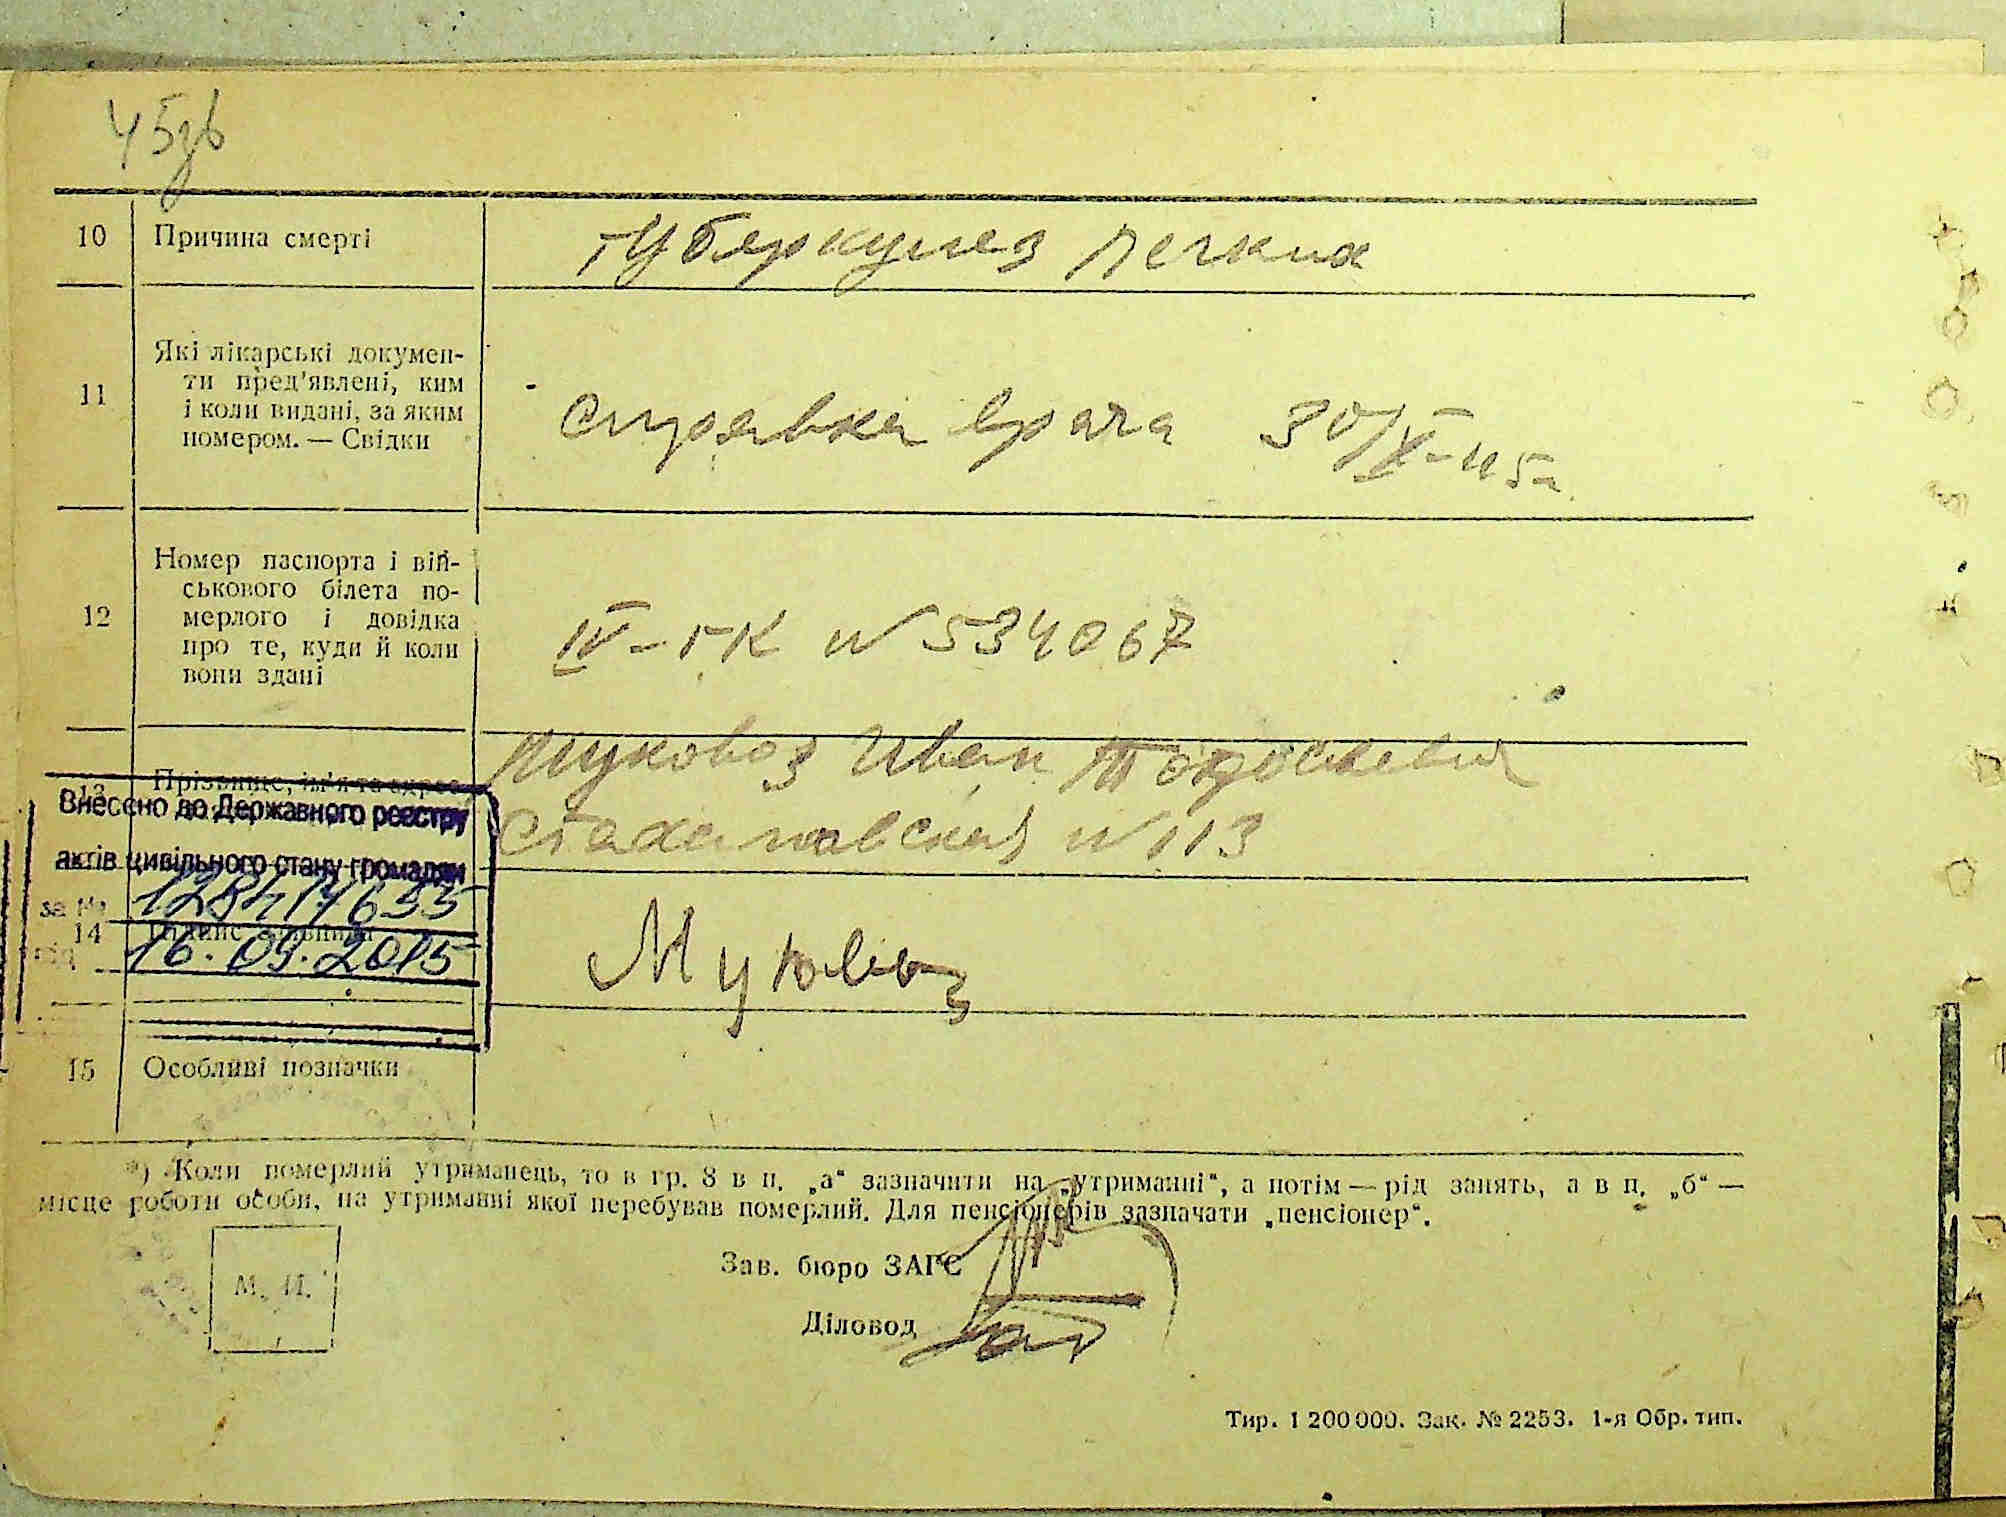 45зв
10 Причина смерті туберкулез легких
11 Які лікарські докумен-
ти пред'явлені, ким
і коли видані, за яким
номером. — Свідки
справка врача 30/X-45г
12 Номер паспорта і вій-
ськового білета по-
мерлого і довідка
про те, куди й коли
вони здані
IV-ГК N 534067
13 Прізвище, ім'я та адрес
Муковоз Иван
Стахановская N 113
Внесено до Державного реєстру
актів цивільного стану громадян
за №
14 Підпис
16.09.2015
Муковоз
15 Особливі позначки
*) Коли померлий утриманець, то в гр. 8 в п. „а“ зазначити на „утриманні“, а потім — рід занять, а в п. „б“ —
місце роботи особи, на утриманні якої перебував померлий. Для пенсіонерів зазначати „пенсіонер“.
М. П.
Зав. бюро ЗАГС
Діловод
Тир. 1 200 000. Зак. № 2253. 1-я Обр. тип.